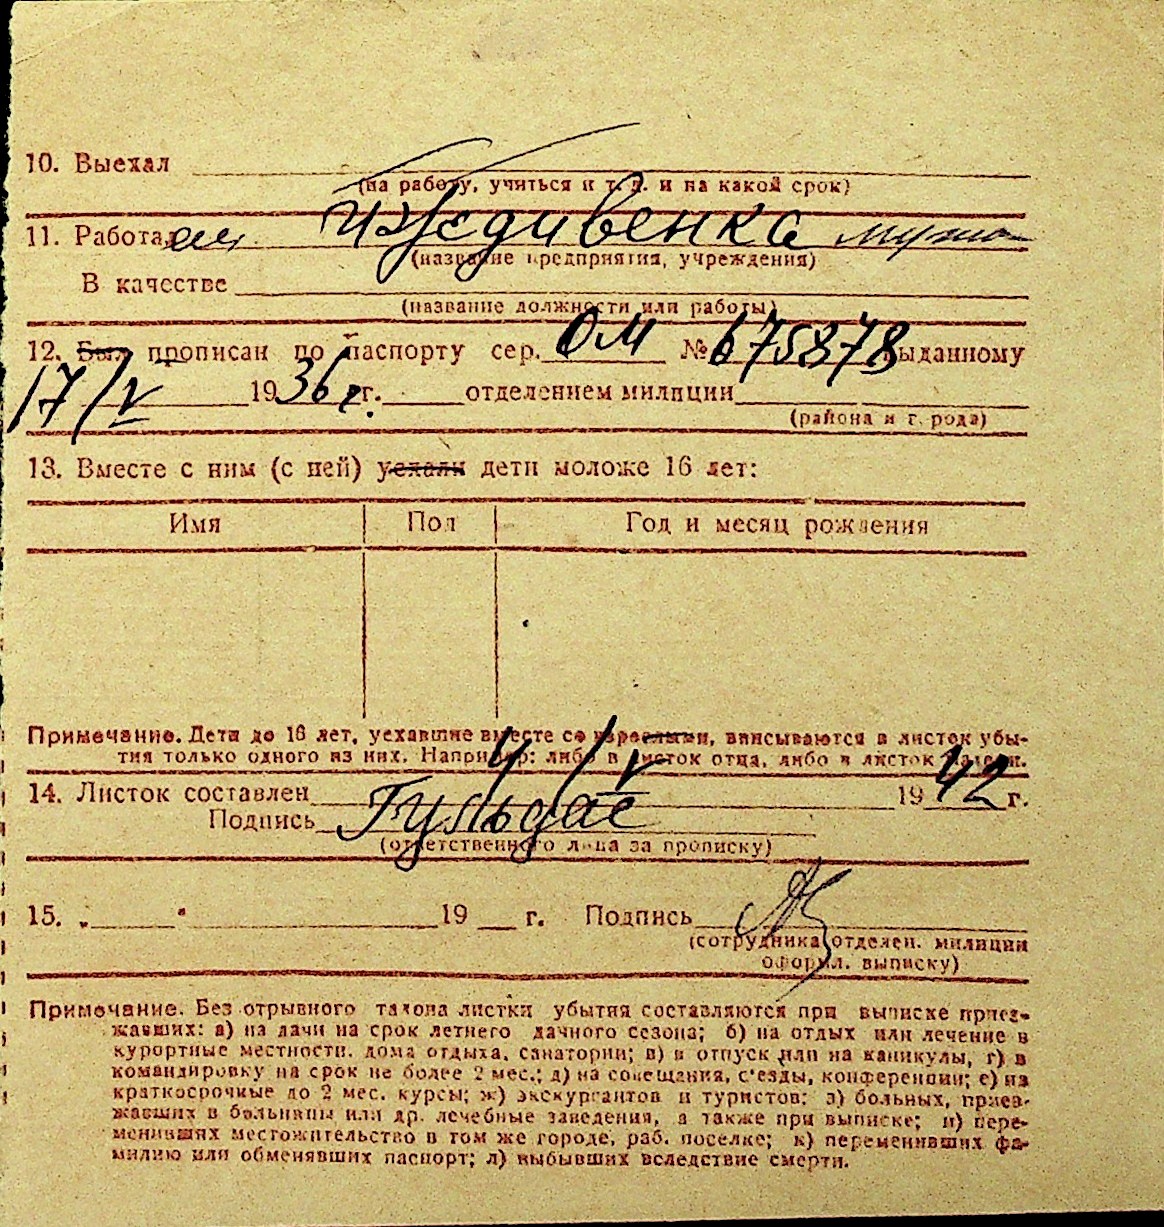 10. Выехал
(на работу, учиться и т. д. и на какой срок)
11. Работал Иждивенка мужа
(название предприятия, учреждения)
В качестве
(название должности или работы)
12. Был прописан по паспорту сер. ОМ № 675878 выданному
17/V 1936 г. г. отделением милиции
(района и города)
13. Вместе с ним (с ней) уехали дети моложе 16 лет:
Имя Пол Год и месяц рождения
Примечание. Дети до 16 лет, уехавшие вместе со взрослыми, вписываются в листок убы-
тия только одного из них. Например: либо в листок отца, либо в листок матери.
14. Листок составлен 4/V 1942 г.
Подпись
(ответственного лица за прописку)
15. „ " 19 г. Подпись
(сотрудника отделен. милиции
оформ. выписку)
Примечание. Без отрывного талона листки убытия составляются при выписке приез-
жавших: а) на дачи на срок летнего дачного сезона; б) на отдых или лечение в
курортные местности, дома отдыха, санатории; в) в отпуск или на каникулы, г) в
командировку на срок не более 2 мес.; д) на совещания, с'езды, конференции; е) на
краткосрочные до 2 мес. курсы; ж) экскурсантов и туристов; з) больных, приез-
жавших в больницы или др. лечебные заведения, а также при выписке; и) пере-
менивших местожительство в том же городе, раб. поселке; к) переменивших фа-
милию или обменявших паспорт; л) выбывших вследствие смерти.